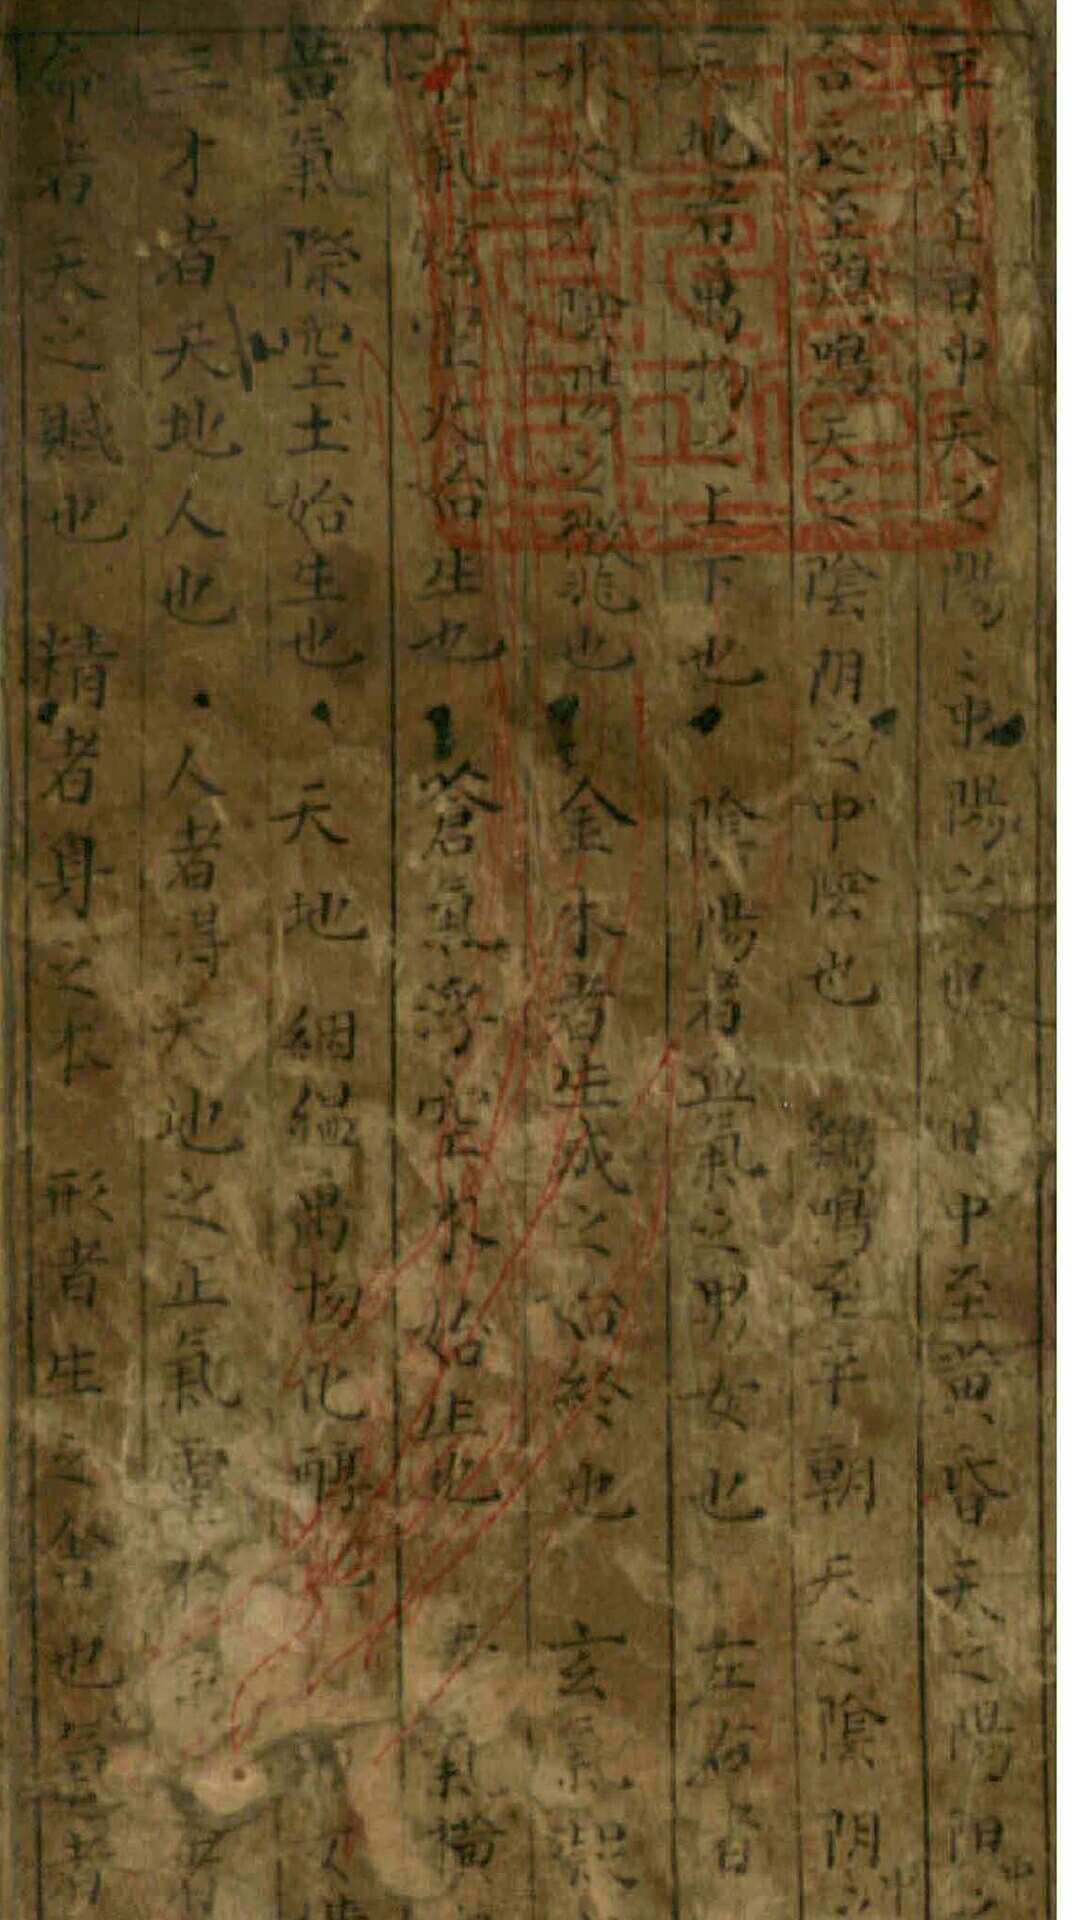 平則至日中天之陽〻中陽之也 日中至黄昏天之陽阳中之
合夜至鷄鳴天之陰阴之中陰也 鷄鳴至平朝天之陰阴中之
天地者萬物之上下也 陰陽者血氣之男女也 左右者
水火者陰陽之徵兆也 金木者生成之白終也 玄氣凝
氣 空火台生也 蒼氣湾空木始生也 氣横
黄氣際空土始生也 天地絪縕萬物化醇
三才者天地人也 人者得天地之正氣靈於
命者天之賦也 精者身之本 形者生之舍也 者